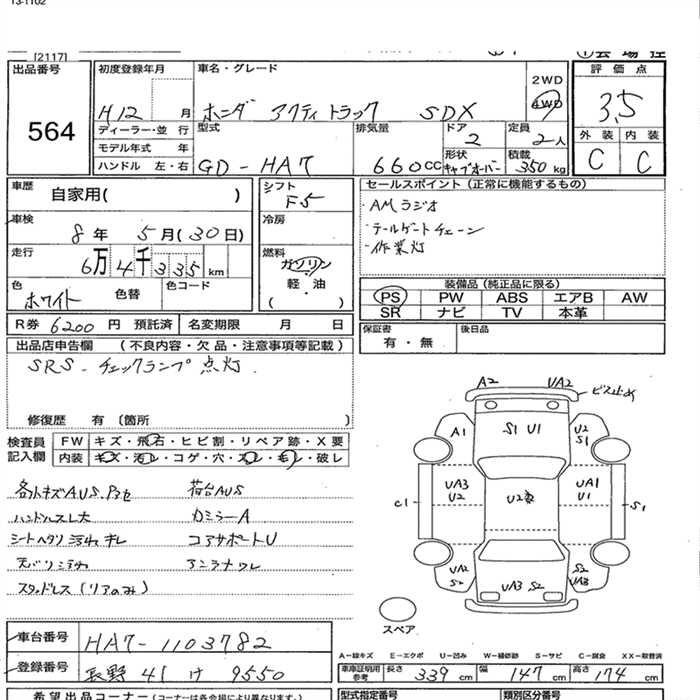 [2117]
出品番号
564
初度登録年月
H12 月
車名・グレード
ホンダ アクティトラック SDX
2WD
4WD
評価点
3.5
外装 内装
C C
ディーラー・並行
モデル年式 年
ハンドル 左・右
型式
GD-HA7
排気量
660cc
ドア
2
形状
キャブオーバー
定員
2人
積載
350kg
車歴
自家用( )
車検
8年 5月(30日)
走行
6万4千335km
色
ホワイト
色替
色コード
シフト
F5
冷房
燃料
ガソリン
軽・油
( )
セールスポイント(正常に機能するもの)
・AMラジオ
・テールゲートチェーン
・作業灯
装備品(純正品に限る)
PS PW ABS エアB AW
SR ナビ TV 本革
R券 6200 円 預託済
名変期限 月 日
保証書
有・無
後日品
出品店申告欄 (不良内容・欠品・注意事項等記載)
SRS-チェックランプ点灯
修復歴 有 (箇所 )
検査員
記入欄
FW キズ・飛石・ヒビ割・リペア跡・X要
内装 キズ・汚レ・コゲ・穴・スレ・モレ・破レ
各小キズAUS.
荷台AUS
ハンドルスレ大
カミラーA
シートヘタリ汚れキレ
コアサポートU
天バリ汚れ
アンテナワレ
スタッドレス(リアのみ)
A2 UA2 ビス止め
A1 S1 U1 U2 S1
C1 UA3 U2 U2 UA1 U1 S1
UA2 S2 UA3 S2 S2 UA3
スペア
車台番号
HA7-1103782
登録番号
長野 41 け 9550
A-線キズ E-エクボ U-凹み W-補修跡 S-サビ C-腐食 XX-取替済
車庫証明用
参考
長さ 339 cm 幅 147 cm 高さ 174 cm
希望出品コーナー(コーナーは各会場により異なります)
型式指定番号
類別区分番号